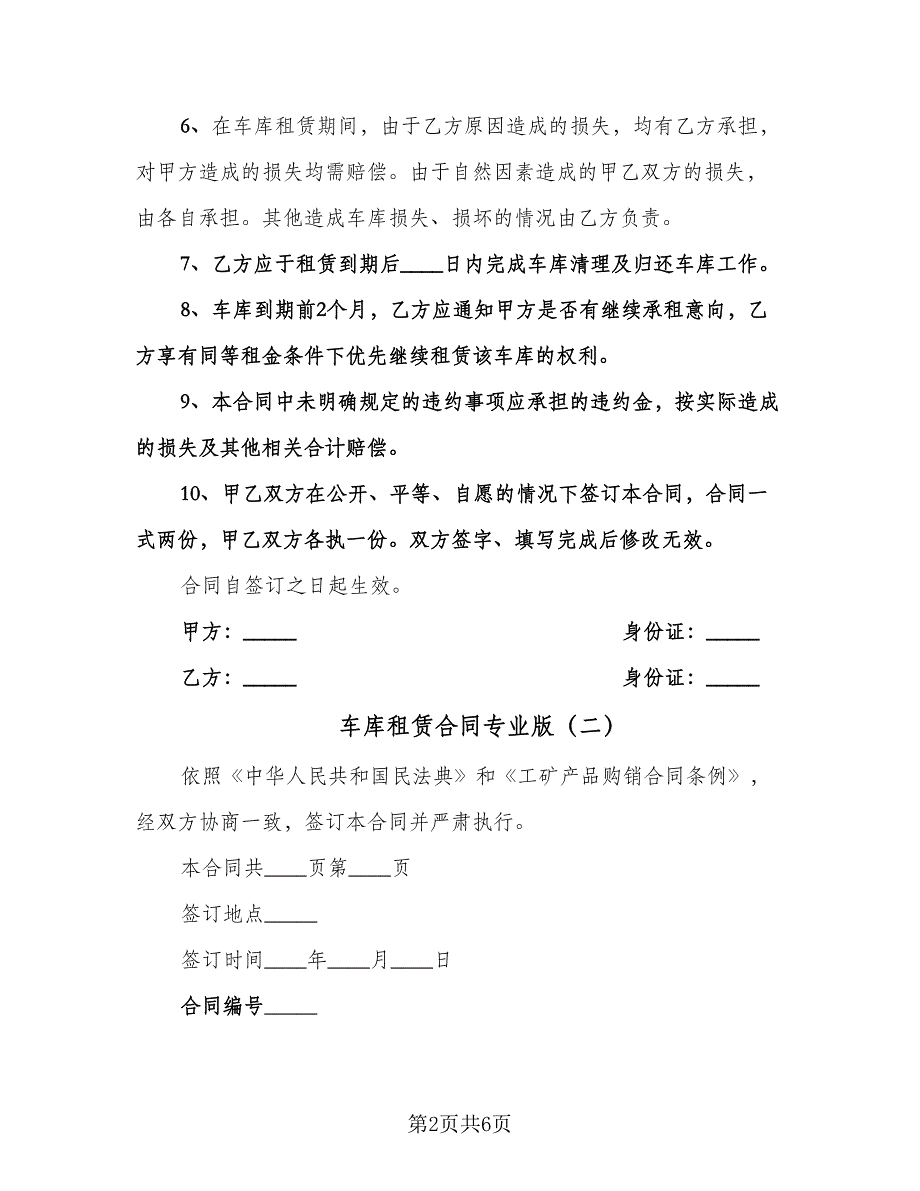 6、在车库租赁期间，由于乙方原因造成的损失，均有乙方承担，
对甲方造成的损失均需赔偿。由于自然因素造成的甲乙双方的损失，
由各自承担。其他造成车库损失、损坏的情况由乙方负责。
7、乙方应于租赁到期后____日内完成车库清理及归还车库工作。
8、车库到期前2个月，乙方应通知甲方是否有继续承租意向，乙
方享有同等租金条件下优先继续租赁该车库的权利。
9、本合同中未明确规定的违约事项应承担的违约金，按实际造成
的损失及其他相关合计赔偿。
10、甲乙双方在公开、平等、自愿的情况下签订本合同，合同一
式两份，甲乙双方各执一份。双方签字、填写完成后修改无效。
合同自签订之日起生效。
甲方：_____ 身份证：_____
乙方：_____ 身份证：_____
车库租赁合同专业版（二）
依照《中华人民共和国民法典》和《工矿产品购销合同条例》，
经双方协商一致，签订本合同并严肃执行。
本合同共____页第____页
签订地点_____
签订时间____年____月____日
合同编号_____
第2页共6页